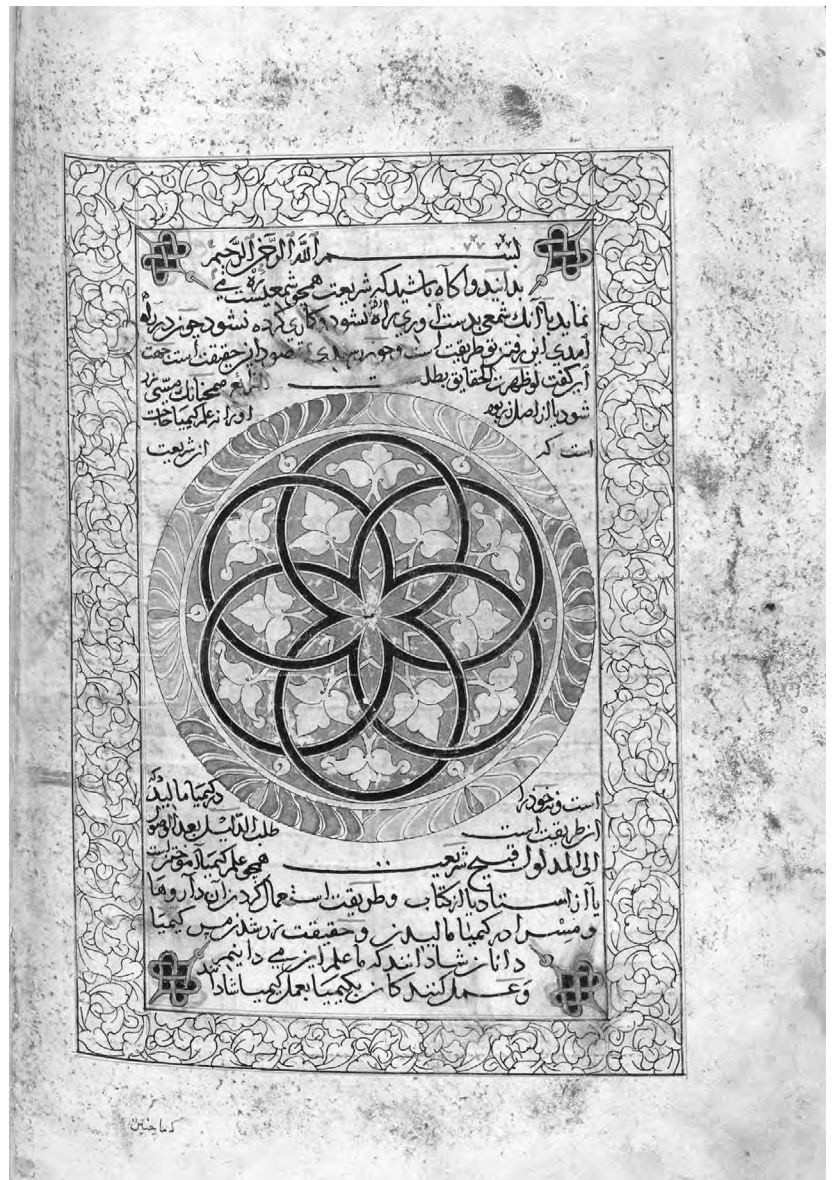 بسم الله الرحمن الرحيم
بدانید و آگاه باشید که شریعت همچو شمعیست ره می
نماید بی آنک شمعی بدست آوری راه رفته نشود و کاری کرده نشود چون در راه
آمدی این رفتن تو طریقت است و چون رسیدی مقصود آن حقیقت است جهت
این گفت لو ظهرت الحقایق بطلت الشرایع همچنانک مسی زر
شود یا از اصل زر بود او را نه علم کیمیا حاجت
است که از شریعت
است و نه خود را در کیمیا مالیدن که
از طریقت است طلب الدلیل بعد الوصول
الی المدلول قبیح شریعت همچو علم کیمیا آموختن است
یا از استاد یا از کتاب و طریقت استعمال کردن آن داروها
و مس را در کیمیا مالیدن و حقیقت زر شدن مس کیمیا
دانان شادانند که ما علم این می دانیم
و عمل کنندگان بکیمیا بعمل کیمیا شادانند
که ما چنین